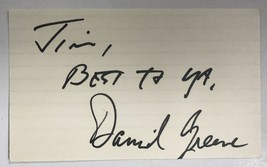 Jim,
BEST TO YA,
David Greene